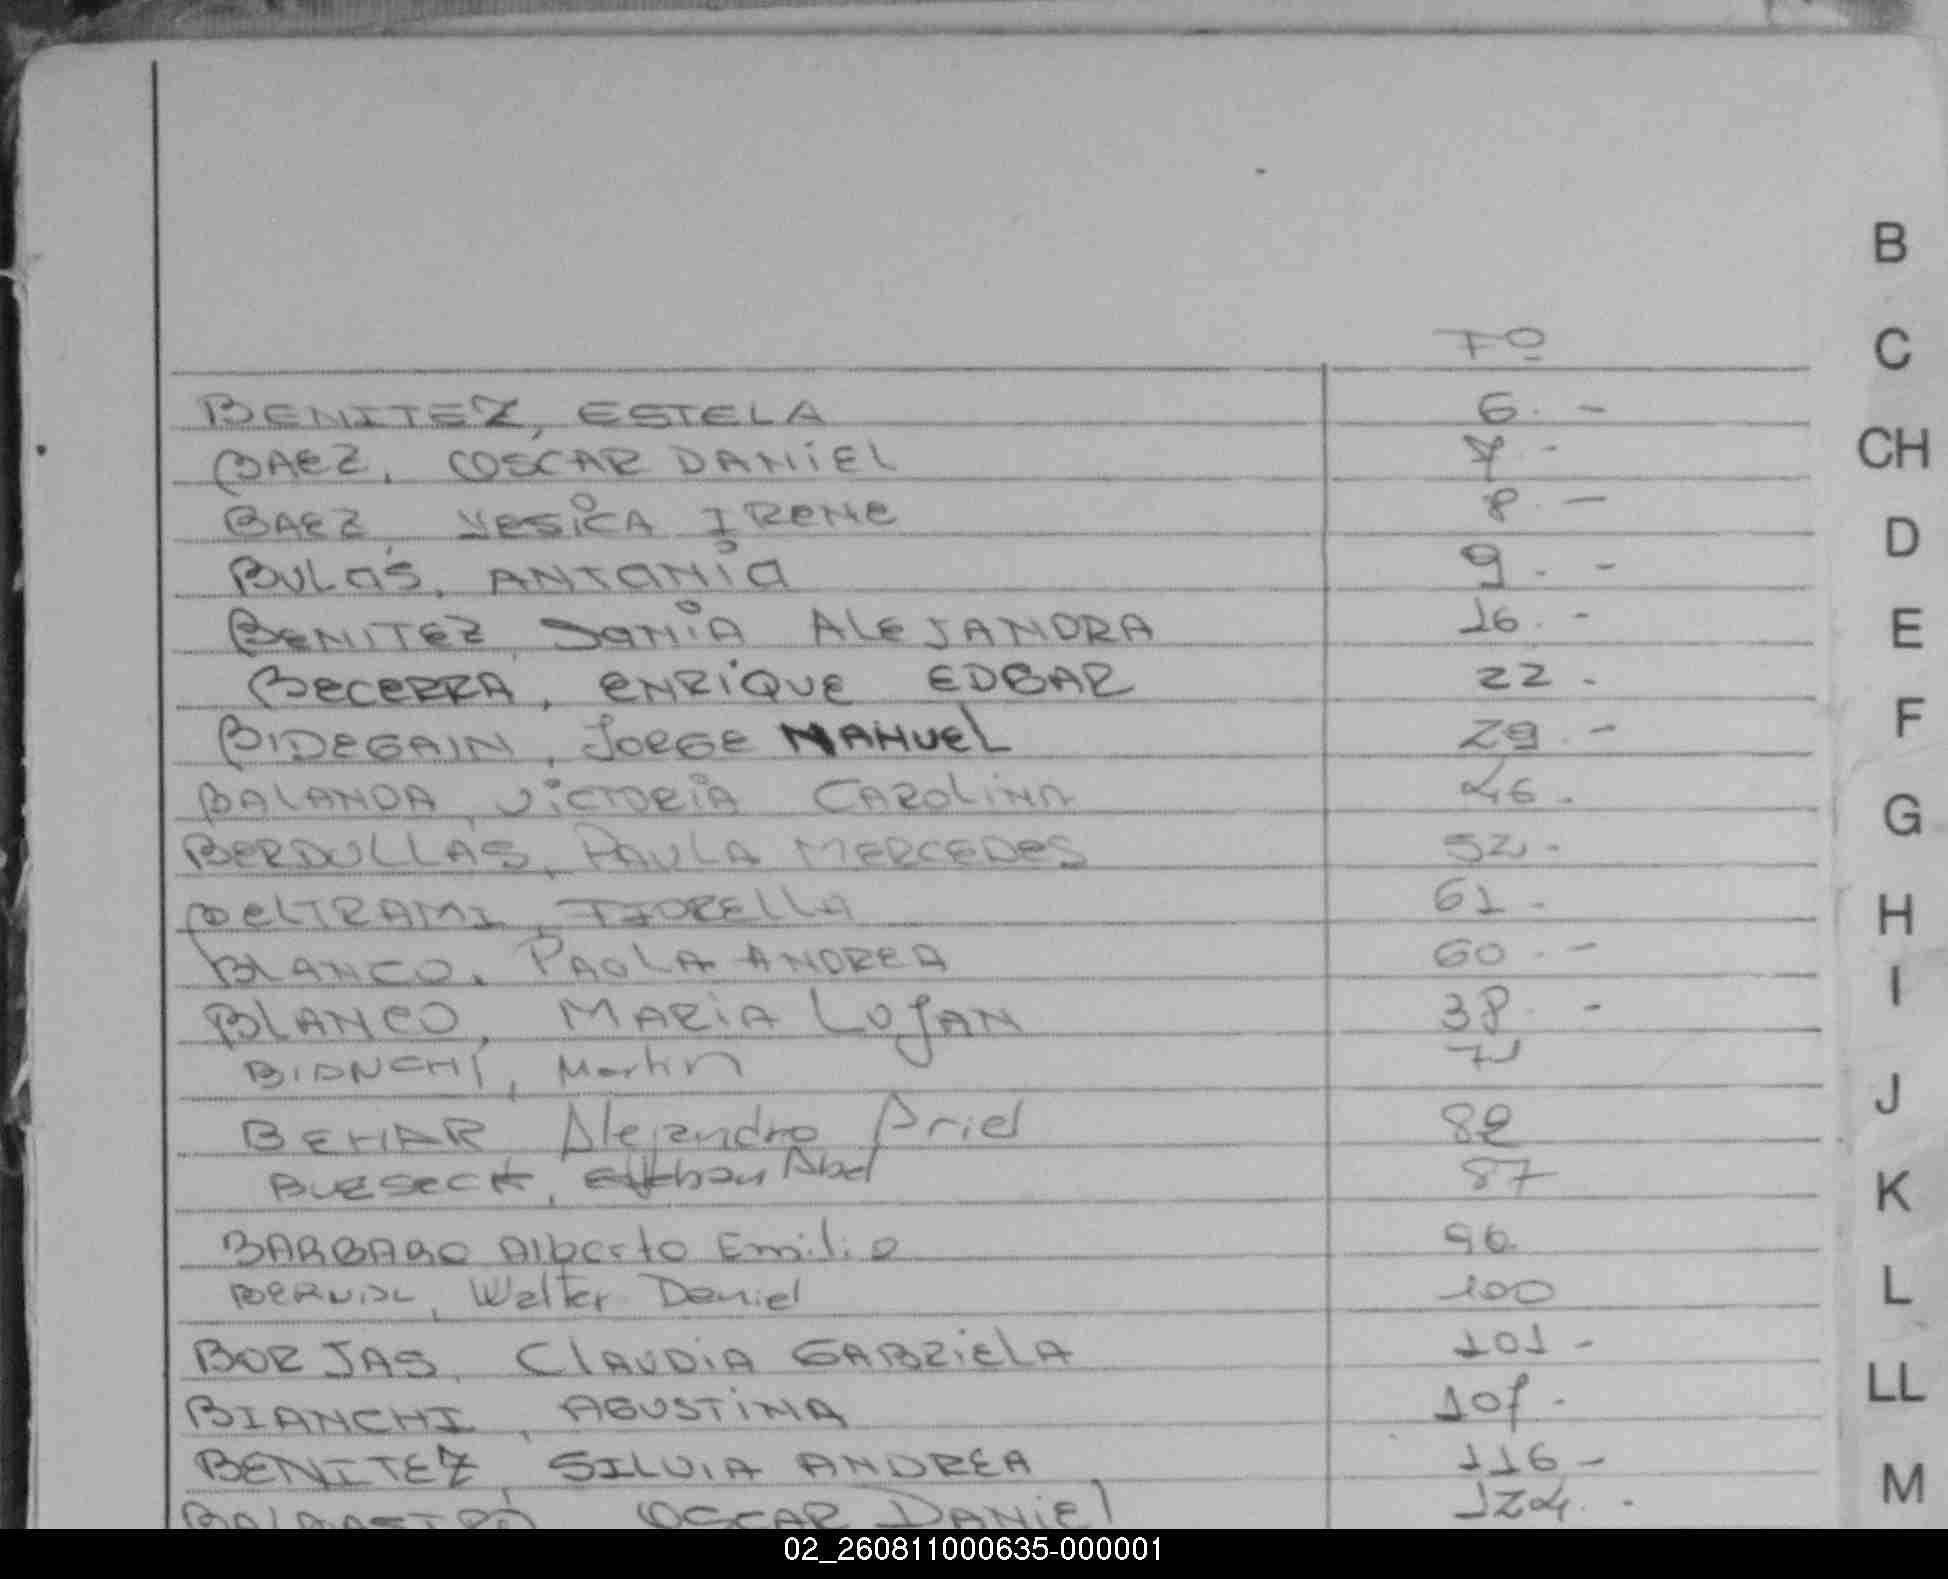 Fº
BENITEZ, ESTELA 6. -
BAEZ, OSCAR DANIEL 7. -
BAEZ, YESICA IRENE 8. -
BULOS, ANTONIA 9. -
BENITEZ, SONIA ALEJANDRA 16. -
BECERRA, ENRIQUE EDGAR 22 -
BIDEGAIN, JORGE NAHUEL 29. -
BALANDA, VICTORIA CAROLINA 46.
BERDULLAS, PAULA MERCEDES 52 -
BELTRAMI, FIORELLA 61 -
BLANCO, PAOLA ANDREA 60. -
BLANCO, MARIA LUJAN 38. -
BIANCHI, Martin
BEHAR Alejandro Ariel 82
Abel 87
BARBARO Alberto Emilio 96
BERNIAL, Walter Daniel 100
BORJAS, CLAUDIA GABRIELA 101 -
BIANCHI, AGUSTINA 107 -
BENITEZ, SILVIA ANDREA 116 -
OSCAR DANIEL 124. -
B
C
CH
D
E
F
G
H
I
J
K
L
LL
M
02_260811000635-000001